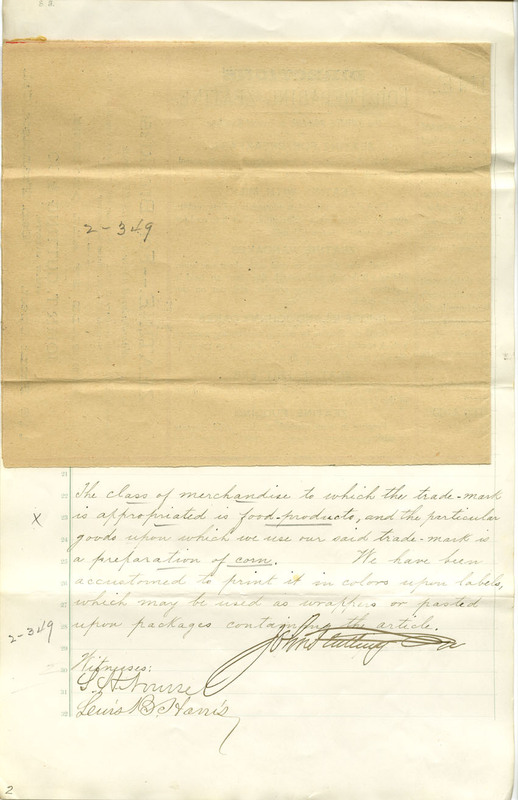 2-349
21
22 The class of merchandise to which the trade-mark
X 23 is appropriated is food-products, and the particular
24 goods upon which we use our said trade-mark is
25 a preparation of corn. We have been
26 accustomed to print it in colors upon labels,
27 which may be used as wrappers or pasted
2-349 28 upon packages containing the article.
29
30 Witnesses:
31 S. A. Nourse
32 Lewis B. Harris
2